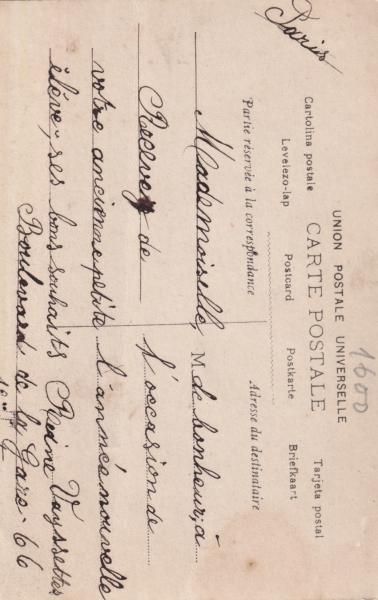 Paris
1600
UNION POSTALE UNIVERSELLE
CARTE POSTALE
Levelezo-lap Postcard Postkarte Briefkaart
Cartolina postale Tarjeta postal
Partie réservée à la correspondance Adresse du destinataire
Mademoiselle, M de bonheur, à
Recevez de l'occasion de
votre ancienne petite l'année nouvelle
élève, ses bons souhaits Reine Vayssettes
Boulevard de la Gare. 66